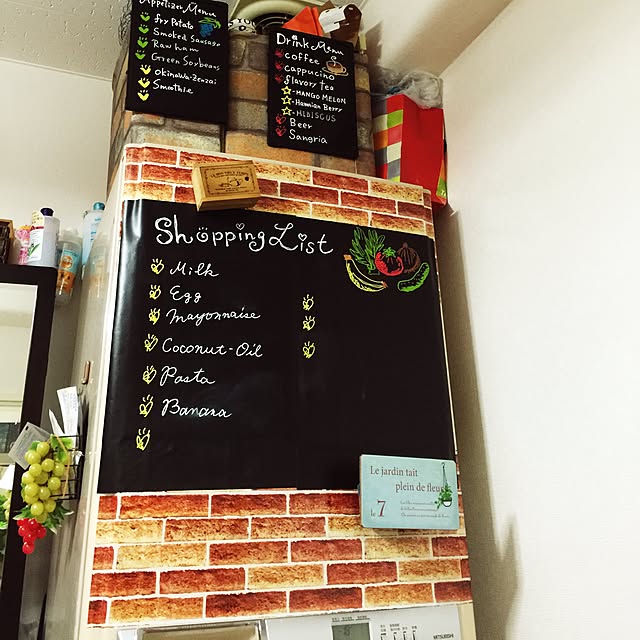 Appetizer Menu
fry Potato
Smoked Sausage
Raw ham
Green Soybeans
Okinawa-Zenzai
Smoothie
Drink Menu
coffee
cappucino
flavory tea
-MANGO MELON
-Hawaiian Berry
-HIBISCUS
Beer
Sangria
Shopping List
Milk
Egg
mayonnaise
Coconut-Oil
Pasta
Banana
Le jardin tait
plein de fleur
le 7
MITSUBISHI